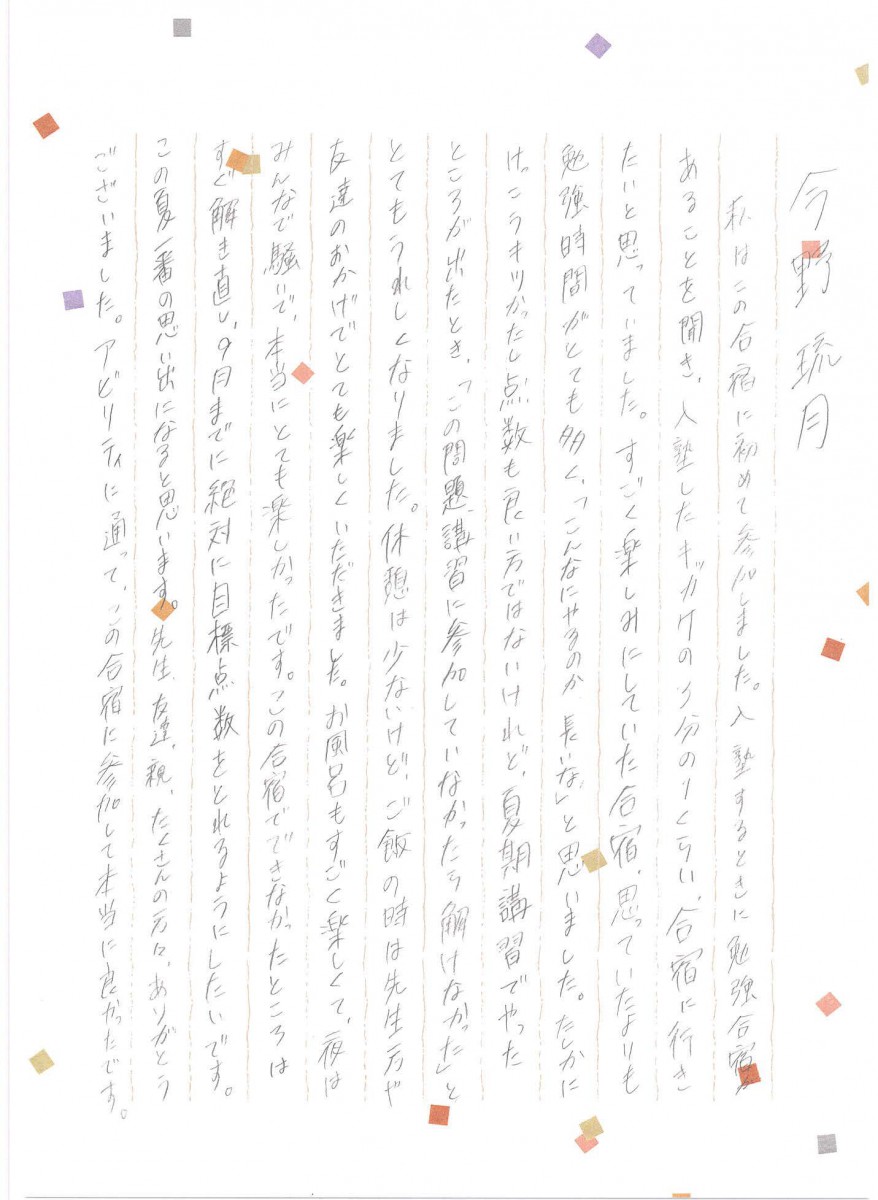 今野 琉月
私はこの合宿に初めて参加しました。入塾するときに勉強合宿が
あることを聞き、入塾したキッカケの3分の1くらい、合宿に行き
たいと思っていました。すごく楽しみにしていた合宿、思っていたよりも
勉強時間がとても多く、「こんなにやるのか 長いな」と思いました。たしかに
けっこうキツかったし点数も良い方ではないけれど、夏期講習でやった
ところが出たとき、「この問題、講習に参加していなかったら解けなかった」と
とてもうれしくなりました。休憩は少ないけど、ご飯の時は先生方や
友達のおかげでとても楽しくいただきました。お風呂もすごく楽しくて、夜は
みんなで騒いで、本当にとても楽しかったです。この合宿でできなかったところは
すぐ解き直し、9月までに絶対に目標点数をとれるようにしたいです。
この夏一番の思い出になると思います。先生、友達、親、たくさんの方々、ありがとう
ございました。アビリティに通って、この合宿に参加して本当に良かったです。